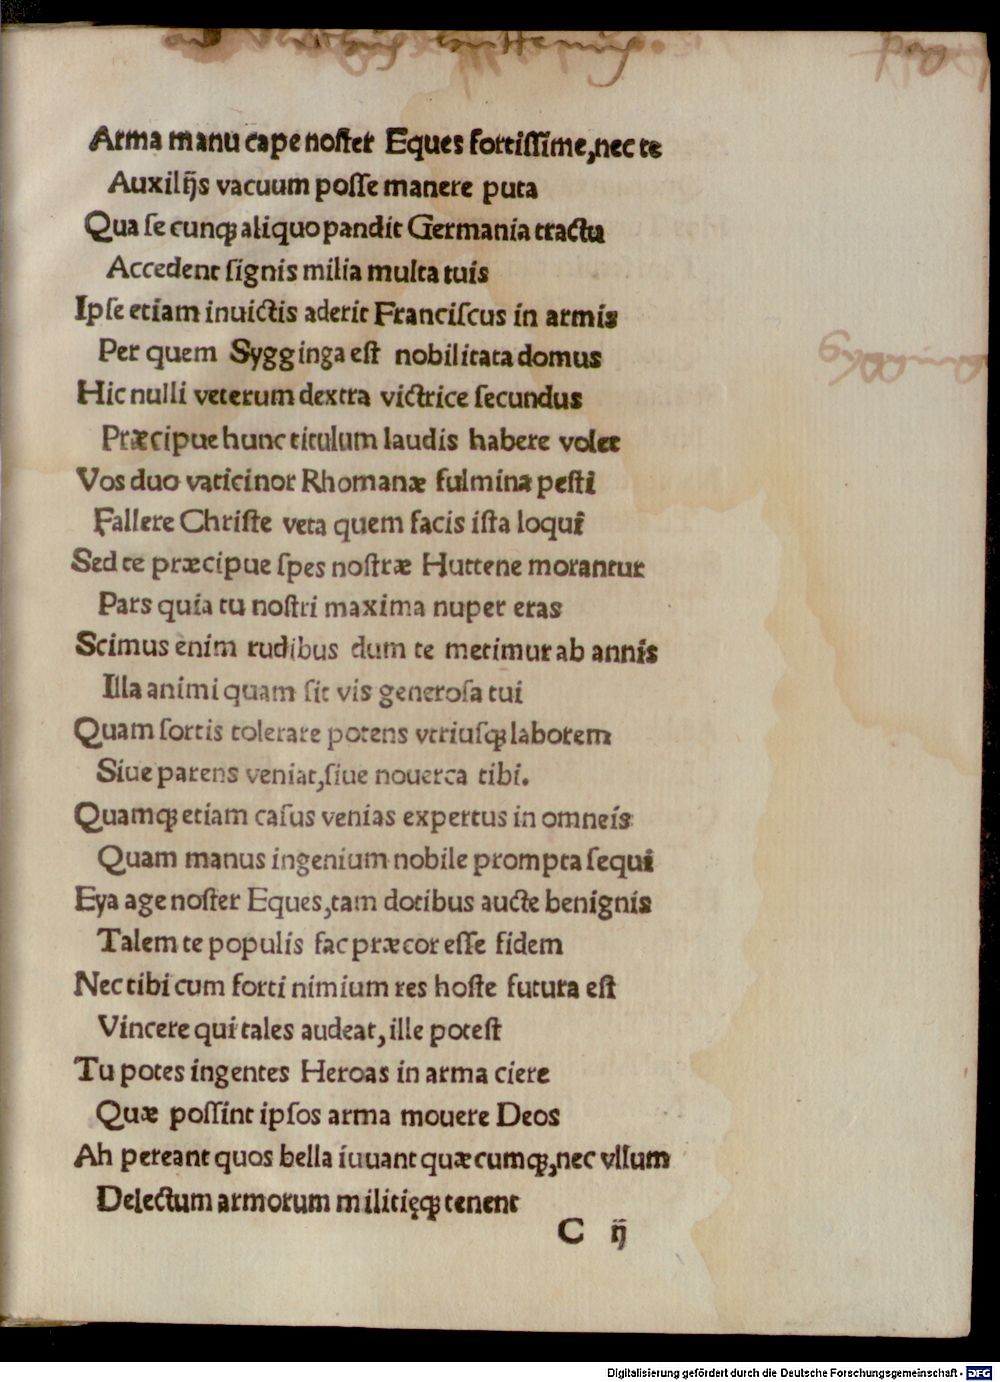 Arma manu cape noster Eques fortiſſime, nec te
Auxilijs vacuum poſſe manere puta
Qua ſe cunqꝫ aliquo pandit Germania tractu
Accedent ſignis milia multa tuis
Ipſe etiam inuictis aderit Franciſcus in armis
Per quem Sygginga eſt nobilitata domus
Hic nulli veterum dextra victrice ſecundus
Præcipue hunc titulum laudis habere volet
Vos duo vaticinor Rhomanæ fulmina peſti
Fallere Chriſte veta quem facis iſta loqui
Sed te præcipue ſpes noſtræ Huttene morantur
Pars quia tu noſtri maxima nuper eras
Scimus enim rudibus dum te metimur ab annis
Illa animi quam ſit vis generoſa tui
Quam ſortis tolerare potens vtriuſqꝫ laborem
Siue parens veniat, ſiue nouerca tibi.
Quamqꝫ etiam caſus venias expertus in omneis
Quam manus ingenium nobile prompta ſequi
Eya age noſter Eques, tam dotibus aucte benignis
Talem te populis fac præcor eſſe fidem
Nec tibi cum forti nimium res hoſte futura eſt
Vincere qui tales audeat, ille poteſt
Tu potes ingentes Heroas in arma ciere
Quæ poſſint ipſos arma mouere Deos
Ah pereant quos bella iuuant quæcumqꝫ, nec vllum
Delectum armorum militięqꝫ tenent
C ij
Digitalisierung gefördert durch die Deutsche Forschungsgemeinschaft - DFG